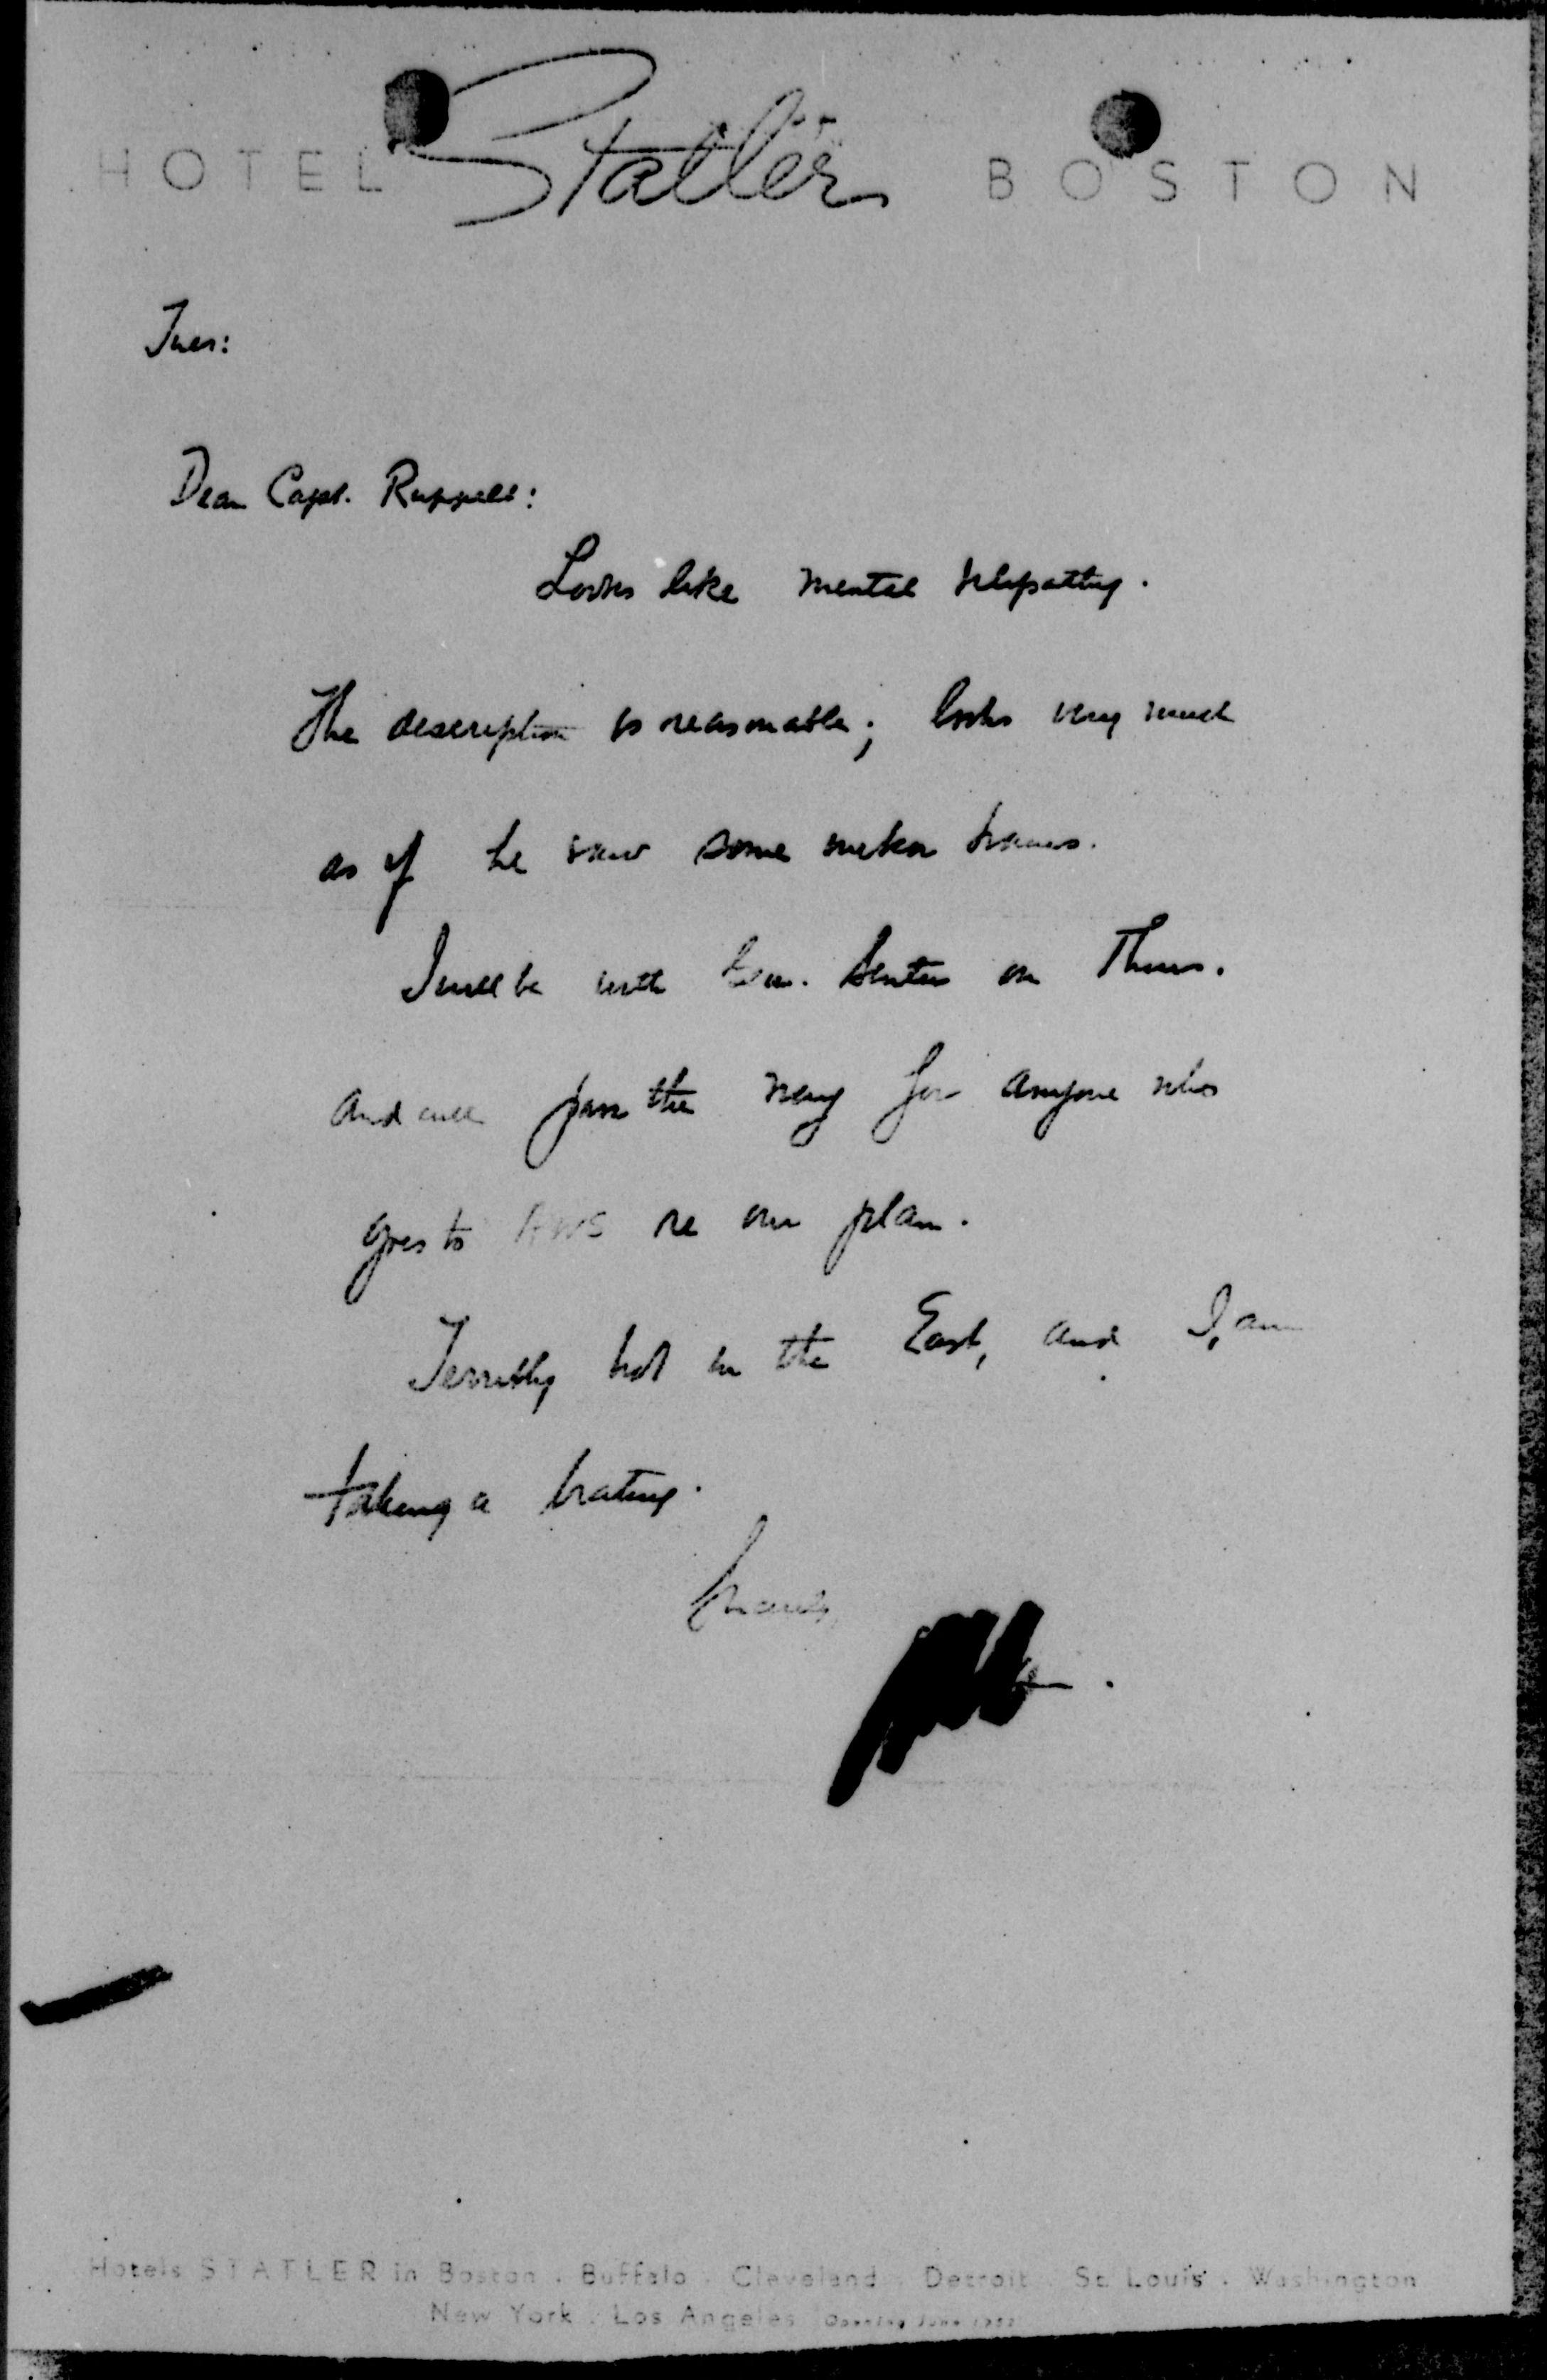 HOTEL Statler BOSTON
Tues:
Dear Capt. Ruppelt:
Looks like mental telepathy.
The description is reasonable; looks very much
as if he saw some meteor trains.
I will be with Gen. on Thurs.
and will the way for anyone who
goes to AWS re our plan.
Terribly hot in the East, and I, am
taking a beating.
Hotels STATLER in Boston . Buffalo . Cleveland . Detroit . St. Louis . Washington
New York . Los Angeles Opening June 1952